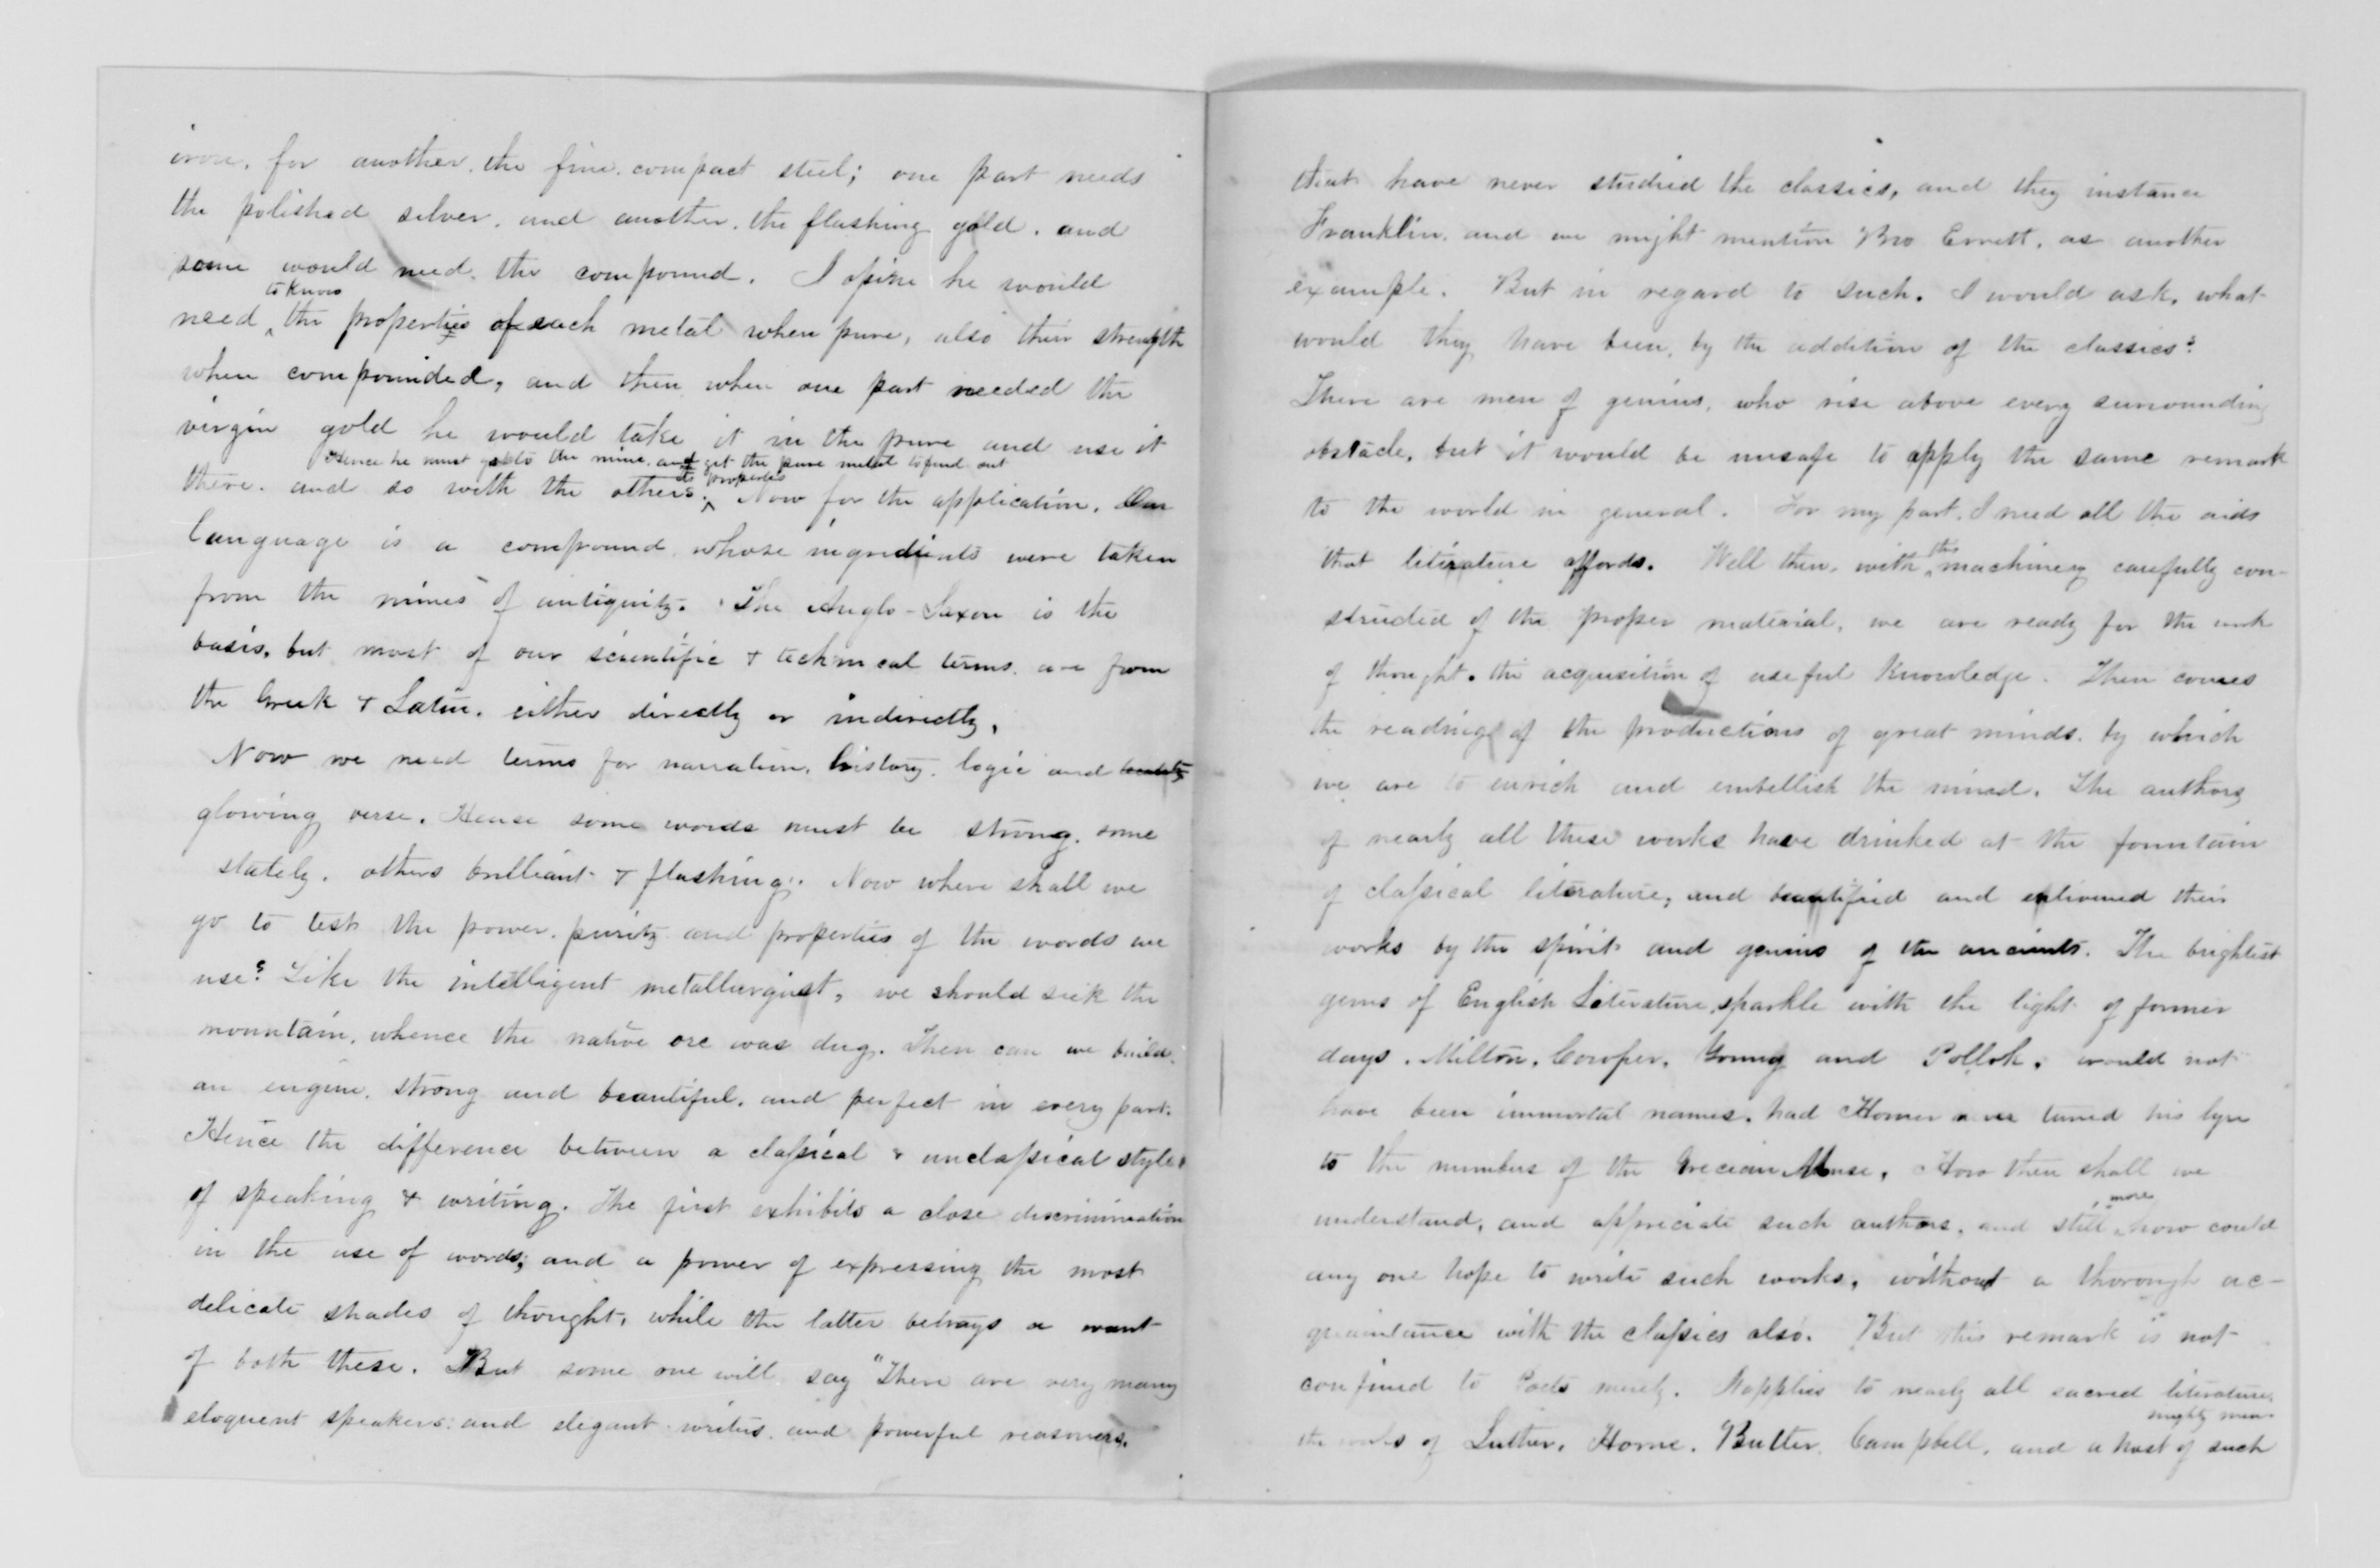 iron, for another, the fine, compact steel; one part needs
the polished silver, and another, the flashing gold, and
some would need, the compound. I opine he would
to know
need ‸ the properties of each metal when pure, also their strength
when compounded, and then when one part needed the
virgin gold he would take it in the pure and use it
Hence he must go to the mine, and get the pure metal to find out
its properties
there, and so with the others. ‸ Now for the application. Our
language is a compound whose ingredients were taken
from the mines of antiquity. The Anglo-Saxon is the
basis, but most of our scientific & technical terms are from
the Greek & Latin, either directly or indirectly.
Now we need terms for narration, history, logic and
glowing verse. Hense some words must be strong, some
stately, others brilliant & flashing. Now where shall we
go to test the power, purity and properties of the words we
use? Like the intelligent metallurgist, we should seek the
mountain, whence the native ore was dug. Then can we build
an engine, strong and beautiful, and perfect in every part.
Hence the difference between a classical & unclassical style
of speaking & writing. The first exhibits a close discrimination
in the use of words; and a power of expressing the most
delicate shades of thought, while the latter betrays a want
of both these. But some one will say "There are very many
eloquent speakers and elegant writers and powerful reasoners,
that have never studied the classics, and they instance
Franklin, and we might mention Bro Errett, as another
example. But in regard to such, I would ask, what
would they have been, by the addition of the classics?
There are men of genius, who rise above every surrounding
obstacle, but it would be unsafe to apply the same remark
to the world in general. For my part, I need all the aids
that literature affords. Well then, with ‸ machinery carefully con-
this
structed of the proper material, we are ready for the work
of thought, the acquisition of useful knowledge. Then comes
the reading of the productions of great minds, by which
we are to enrich and embellish the mind. The authors
of nearly all these works have drinked at the fountain
of classical literature, and beautified and enlivened their
works by the spirit and genius of the ancients. The brightest
gems of English Literature, sparkle with the light of former
days. Milton, Cowper, Young and Pollok, would not
have been immortal names, had Homer never tuned his lyre
to the numbers of the Grecian Muse. How then shall we
more
understand, and appreciate such authors, and still ‸ how could
any one hope to write such works, without a thorough ac-
quaintance with the classics also. But this remark is not
confined to Poets merely. It applies to nearly all sacred literature,
mighty men
the works of Luther, Horne, Butler, Campbell, and a host of such